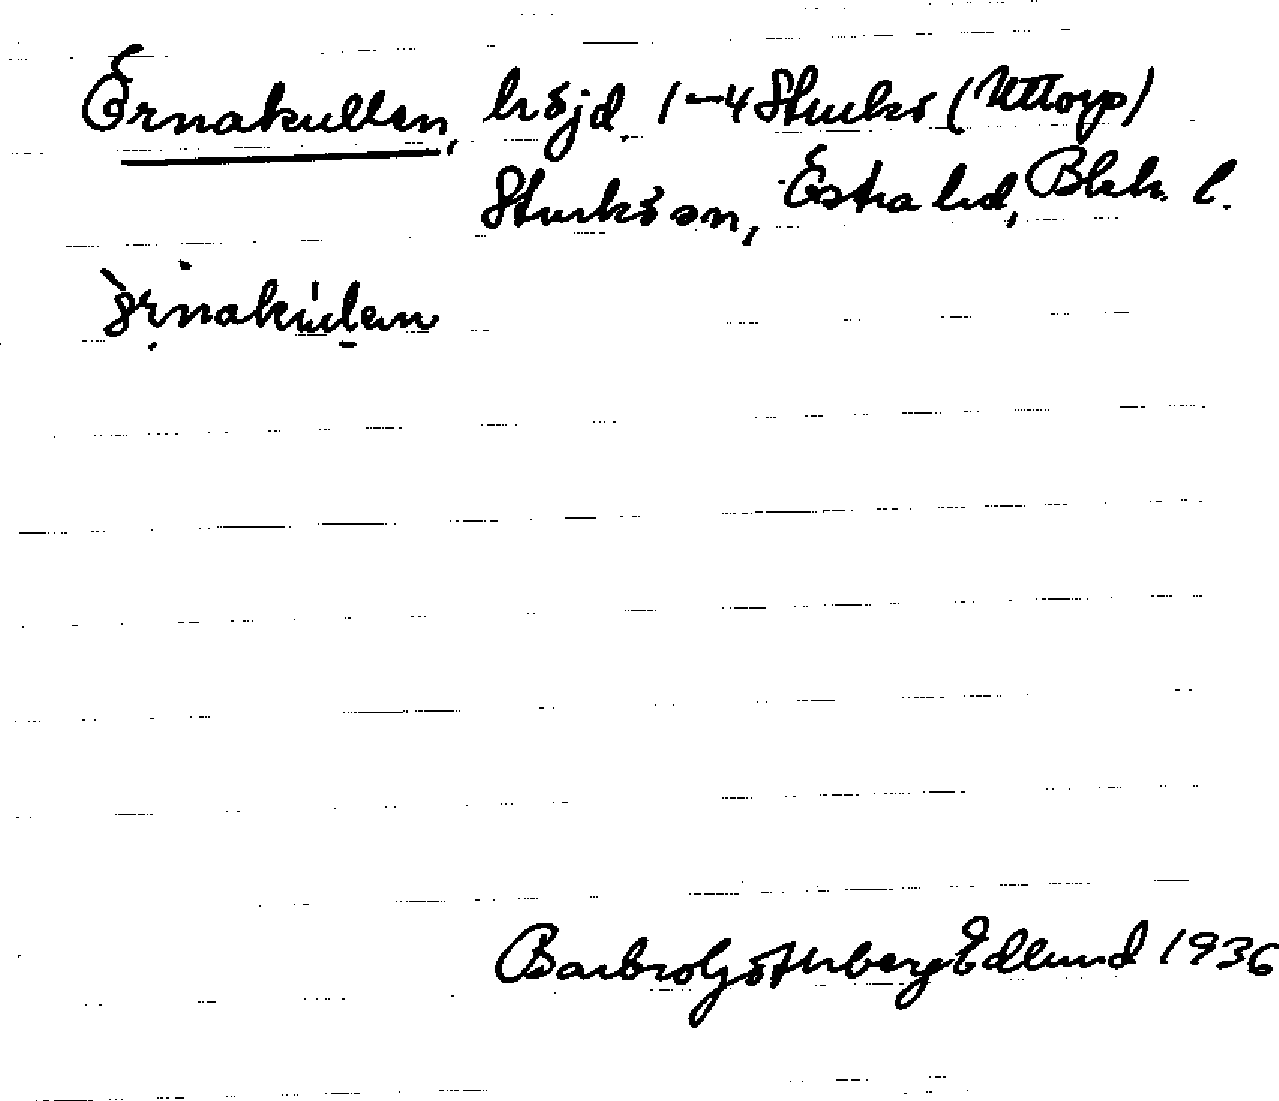 Örnakullen, höjd. 1-4 Sturkö (Uttorp)
Sturkö sn, Östra hd, Blek. l.
Barbro Götherberg Edlund 1936